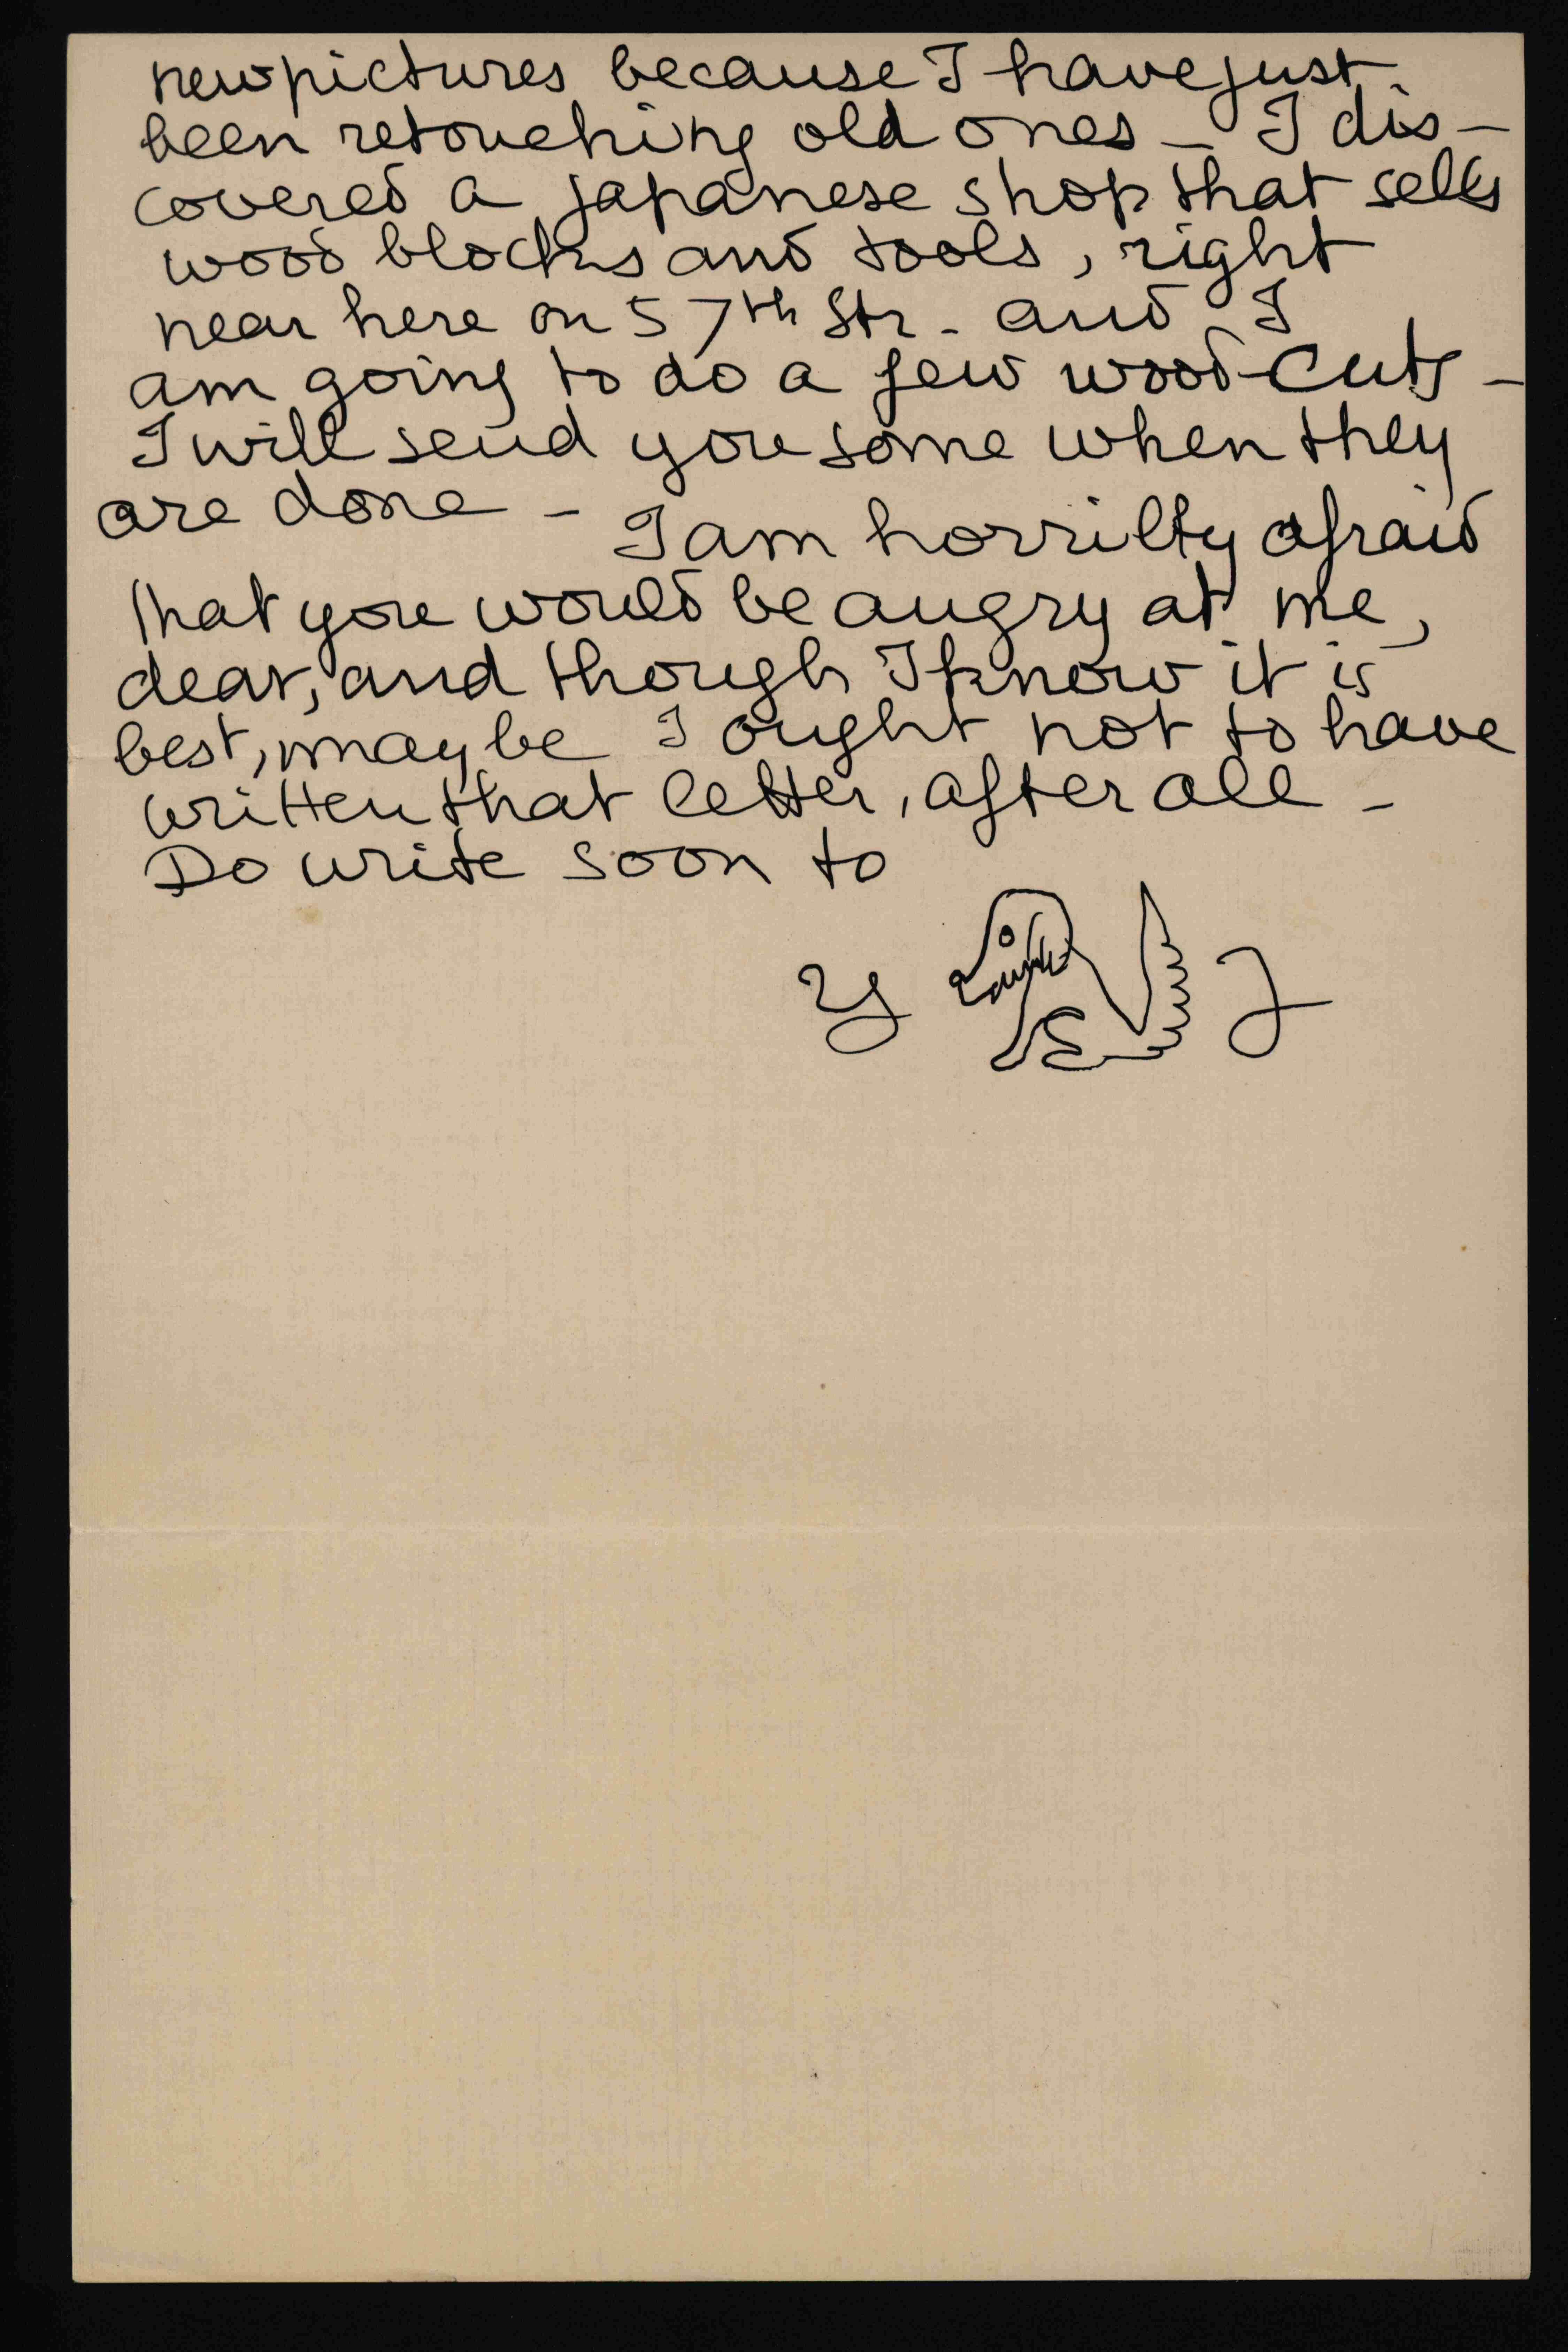 new pictures because I have just
been retouching old ones – I dis–
covered a japanese shop that sells
wood blocks and tools, right
near here on 57th Str. – and I
am going to do a few wood-cuts –
I will send you some when they
are done – I am horribly afraid
that you would be angry at me,
dear, and though I know it is
best, maybe I ought not to have
written that letter, after all –
Do write soon to